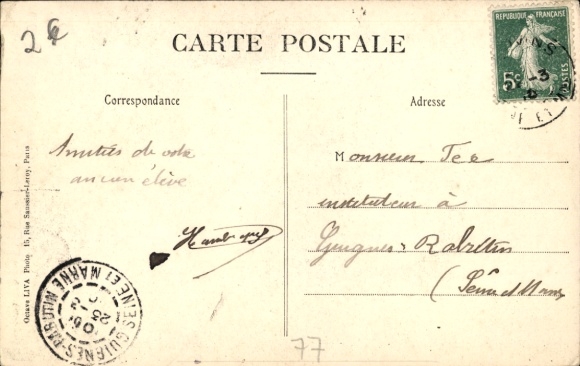 2€
CARTE POSTALE
REPUBLIQUE FRANÇAISE
5c
POSTES
Correspondance
Adresse
Amitiés de votre
ancien élève
Monsieur
instituteur à
Guignes-Rabutin
(Seine et Marne
Octave LIVA Photo 15, Rue Saussier-Leroy, Paris
GUIGNES-RAB
SEINE ET MARNE
77